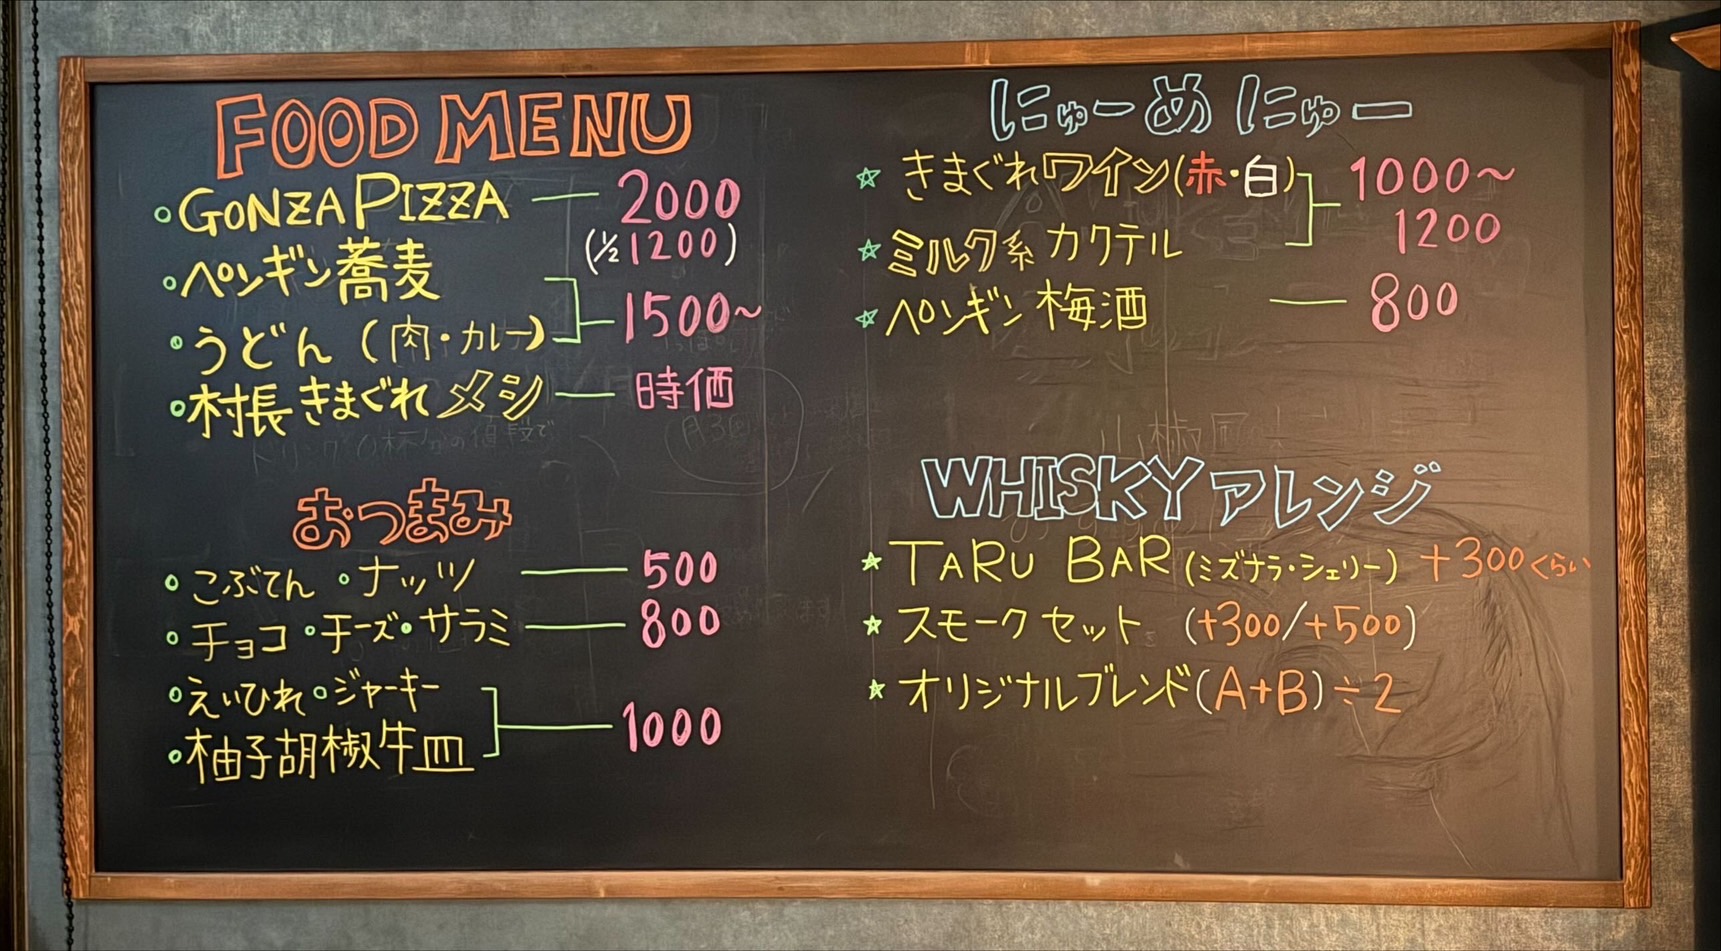 FOOD MENU
GONZA PIZZA 2000
(½ 1200)
ペンギン蕎麦
うどん(肉・カレー) 1500~
村長きまぐれメシ 時価
おつまみ
こぶてん ナッツ 500
チョコ・チーズ・サラミ 800
えいひれ ジャーキー
柚子胡椒牛皿 1000
にゅーめにゅー
☆ きまぐれワイン(赤・白) 1000~
1200
☆ ミルク系カクテル
☆ ペンギン梅酒 800
WHISKYアレンジ
☆ TARU BAR (ミズナラ・シェリー) +300くらい
☆ スモークセット (+300/+500)
☆ オリジナルブレンド(A+B)÷2